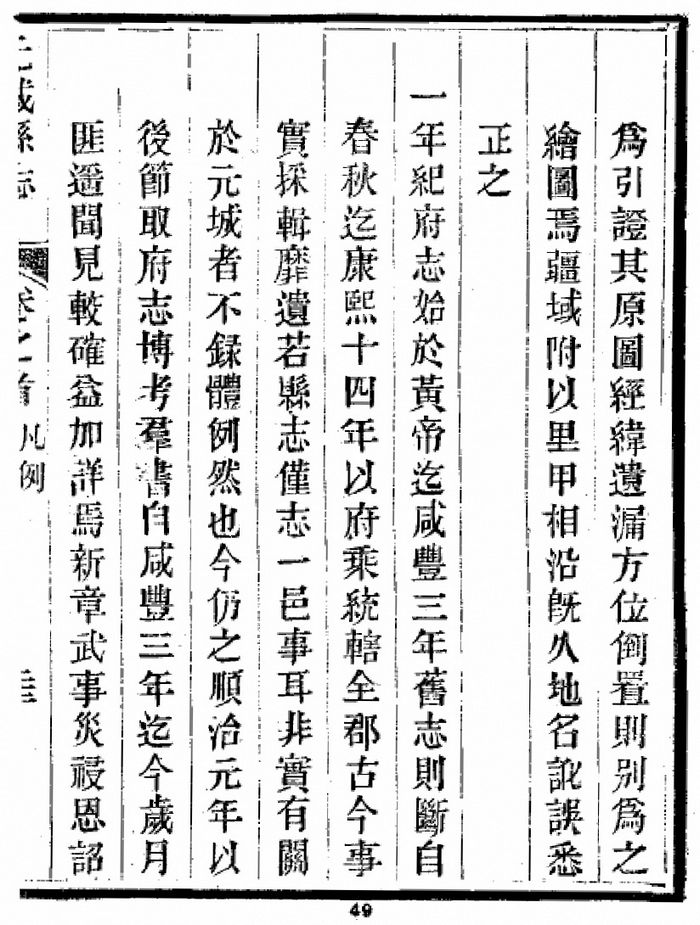 為引證其原圖經緯遺漏方位倒置則別為之
繪圖焉疆域附以里甲相沿旣久地名訛誤悉
正之
一年紀府志始於黃帝迄咸豐三年舊志則斷自
春秋迄康熙十四年以府乘統轄全郡古今事
實採輯靡遺若縣志僅志一邑事耳非實有關
於元城者不録體例然也今仍之順治元年以
後節取府志博考羣書自咸豐三年迄今歲月
匪遥聞見較確益加詳焉新章武事災祲恩詔
元城縣志
卷之首 凡例
三
49